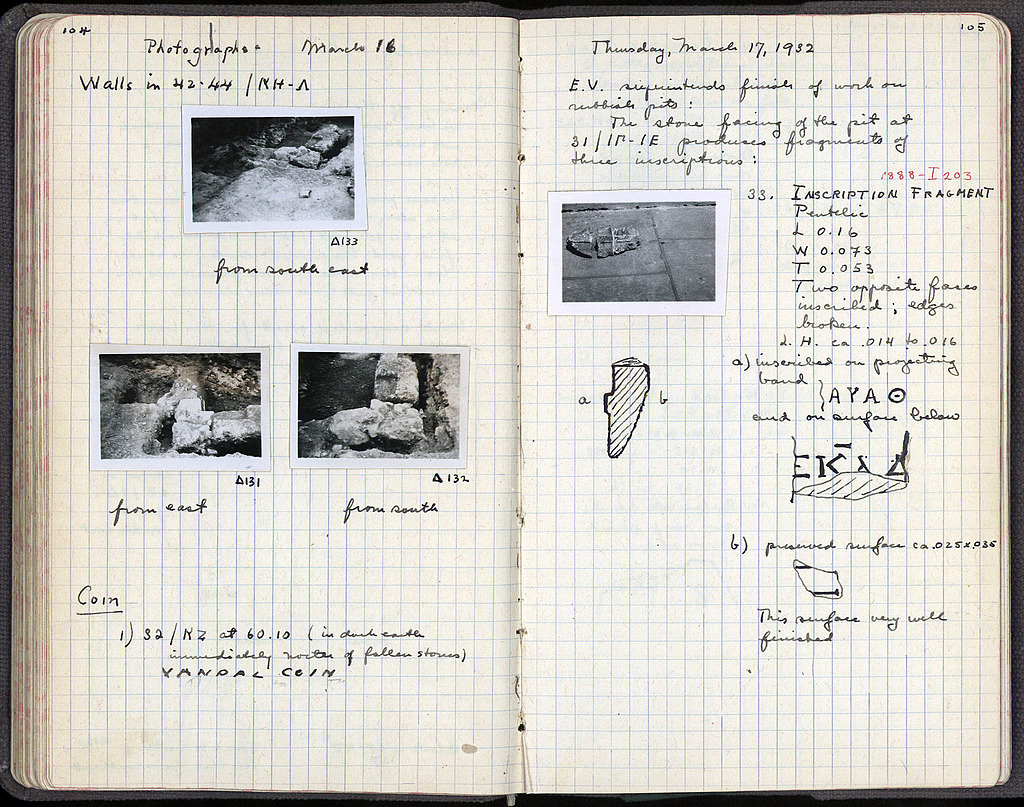 104
Photographs. March 16
Walls in 42-44/ΚΗ-Λ
Δ133
from south east
Δ131
Δ132
from east
from south
Coin
1) 32/ΚΖ at 60.10 (in dark earth
immediately north of fallen stones)
VANDAL COIN
105
Thursday, March 17, 1932
E.V. superintends finish of work on
rubbish pits:
The stone facing of the pit at
31/ΙΓ-ΙΕ produces fragments of
three inscriptions:
1888-I 203
33. INSCRIPTION FRAGMENT
Pentelic
L 0.16
W 0.073
T 0.053
Two opposite faces
inscribed; edges
broken.
L. H. ca .014 to .016
a) inscribed on projecting
band
ΑΥΑΘ
and on surface below
a
b
b) preserved surface ca .025 x .035
This surface very well
finished